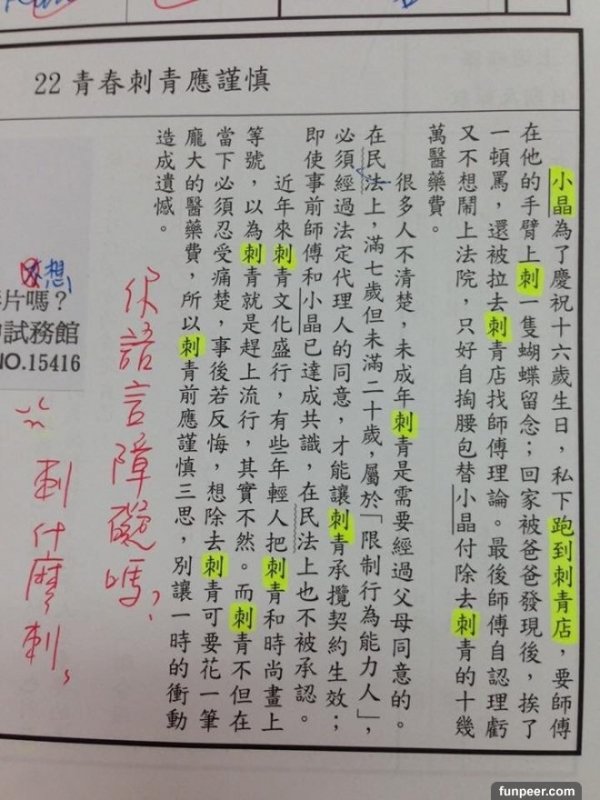 22 青春刺青應謹慎
小晶為了慶祝十六歲生日，私下跑到刺青店，要師傅
在他的手臂上刺一隻蝴蝶留念；回家被爸爸發現後，挨了
一頓罵，還被拉去刺青店找師傅理論。最後師傅自認理虧
又不想鬧上法院，只好自掏腰包替小晶付除去刺青的十幾
萬醫藥費。
很多人不清楚，未成年刺青是需要經過父母同意的。
在民法上，滿七歲但未滿二十歲，屬於「限制行為能力人」，
必須經過法定代理人的同意，才能讓刺青承攬契約生效；
即使事前師傅和小晶已達成共識，在民法上也不被承認。
近年來刺青文化盛行，有些年輕人把刺青和時尚畫上
等號，以為刺青就是趕上流行，其實不然。而刺青不但在
當下必須忍受痛楚，事後若反悔，想除去刺青可要花一筆
龐大的醫藥費，所以刺青前應謹慎三思，別讓一時的衝動
造成遺憾。
你語言障礙嗎？
刺什麼刺，
想
片嗎？
試務館
NO.15416
funpeer.com